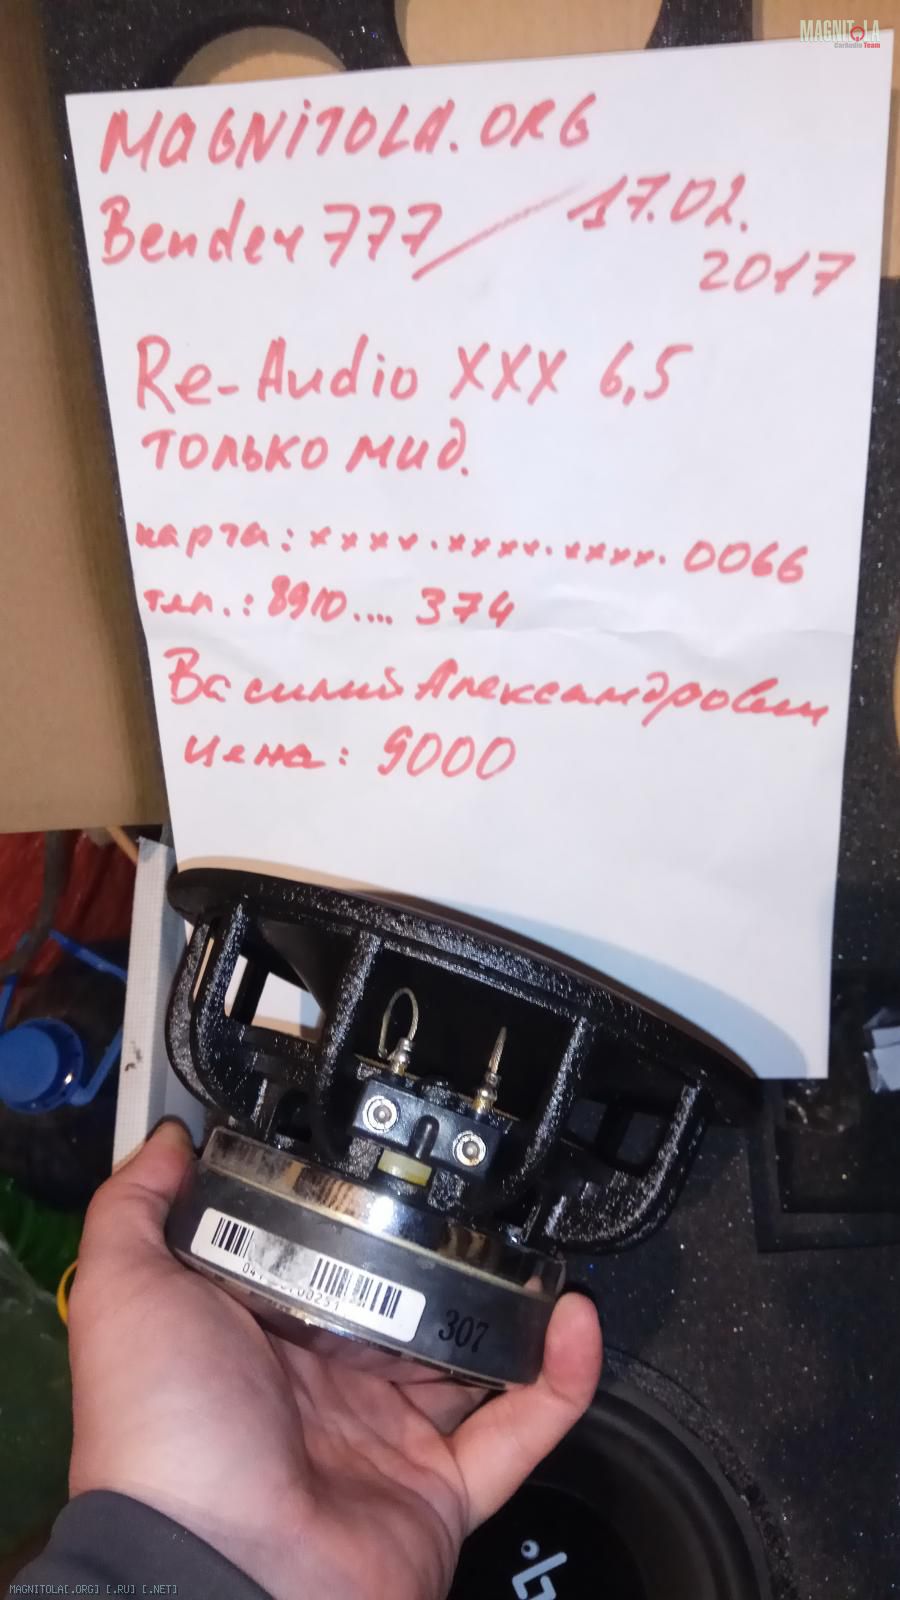 MAGNITOLA
CarAudio Team
MAGNITOLA.ORG
Bender 777 / 17.02.
2017
Re-Audio XXX 6,5
только мид.
карта: xxxx.xxxx.xxxx. 0066
тлп.: 8910.... 374
Василий Александрович
Цена: 9000
307
MAGNITOLA[.ORG] [.RU] [.NET]